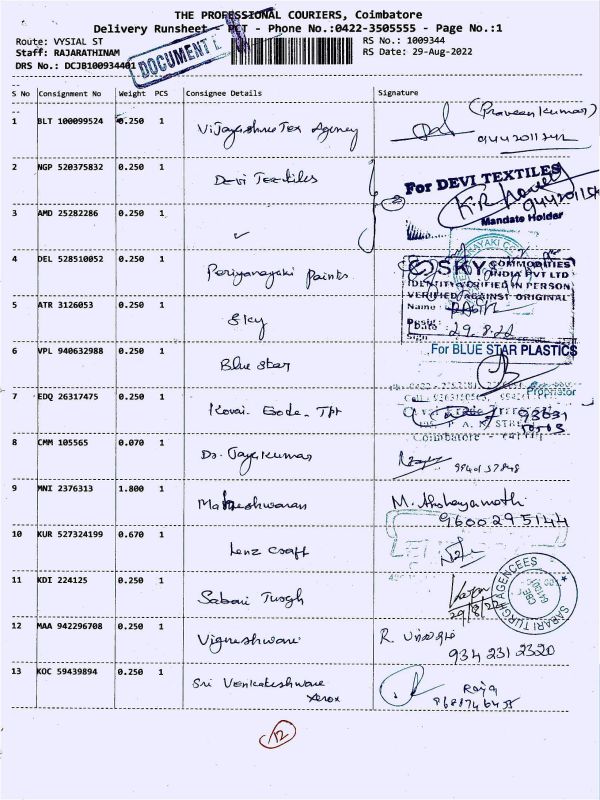 THE PROFESSIONAL COURIERS, Coimbatore
Delivery Runsheet - PCT - Phone No.:0422-3505555 - Page No.:1
Route: VYSIAL ST
RS No.: 1009344
Staff: RAJARATHINAM
RS Date: 29-Aug-2022
DRS No.: DCJB100934401
DOCUMENT
S No Consignment No Weight PCS Consignee Details Signature
1 BLT 100099524 0.250 1 Vijayashree Tex Agency (Praveen kumar)
2 NGP 520375832 0.250 1 Devi Textiles For DEVI TEXTILES
Mandate Holder
3 AMD 25282286 0.250 1 ✓
4 DEL 528510052 0.250 1 Periyanayaki Paints
SKY COMMODITIES
INDIA PVT LTD
IDENTITY VERIFIED IN PERSON
VERIFIED AGAINST ORIGINAL
Name
5 ATR 3126053 0.250 1 Sky
Date 29.8.22
6 VPL 940632988 0.250 1 Blue Star For BLUE STAR PLASTICS
Proprietor
7 EDQ 26317475 0.250 1 Kovai Goods Tpt
Coimbatore
8 CMM 105565 0.070 1 Dr. Jayakumar
9 MNI 2376313 1.800 1 Maheshwaran M. Akshayamathi
9600295144
10 KUR 527324199 0.670 1 Lenz Craft
11 KDI 224125 0.250 1 Sabari Turgh
29/8/22
SABARI TURGH AGENCEES
CBE
12 MAA 942296708 0.250 1 Vigneshwari R.
934 231 2320
13 KOC 59439894 0.250 1 Sri Venkateshware
Xerox
Raja
12